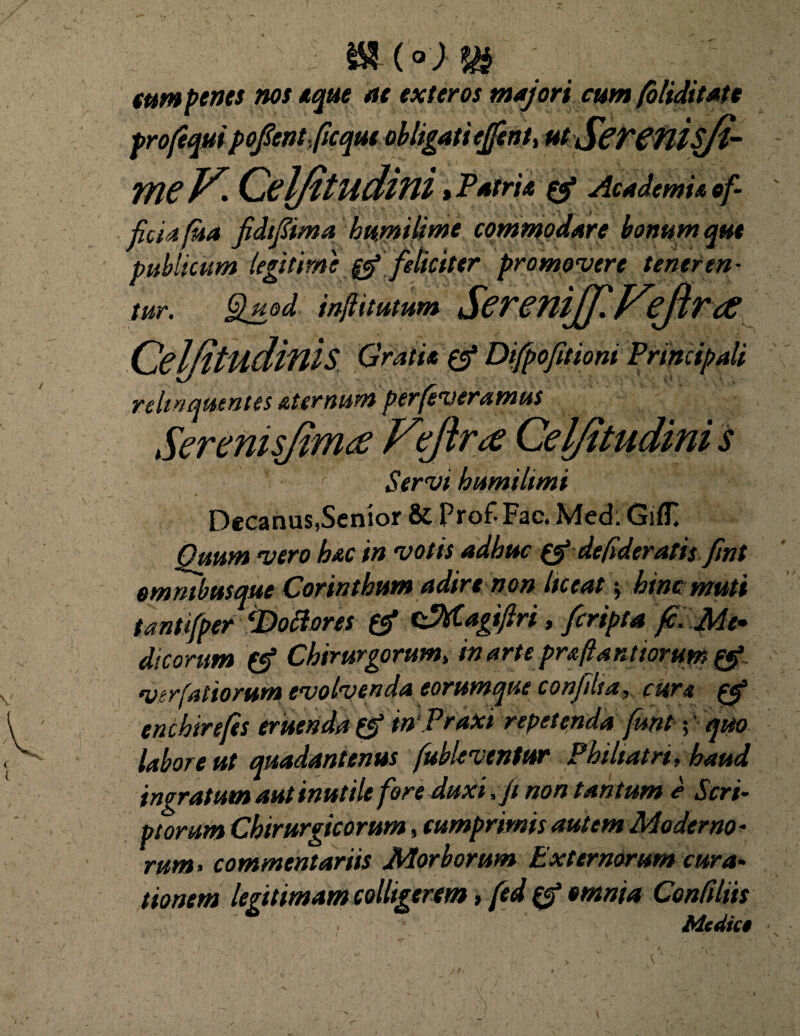 (o)
cum penes nos æque ac exteros majori cum ſoliditate
proſequi poſſent, ſicque obligati eſſent, ut Serenisſi-
me V. Celſitudini, Patriæ & Academiæ of-
ficia ſua fidiſſima humilime commodare bonumque
publicum legitimè & feliciter promovere teneren-
tur. Quod inſtitutum Sereniſſ. Veſtræ
Celſitudinis Gratiæ & Diſpoſitioni Principali
relinquentes æternum perſeveramus
Serenisſimæ Veſtræ Celſitudinis
Servi humilimi
Decanus, Senior & Prof. Fac. Med. Giſſ.
Quum vero hæc in votis adhuc & deſideratis ſint
omnibusque Corinthum adire non liceat; hinc muti
tantiſper Doctores & Magiſtri, ſcripta ſc. Me-
dicorum & Chirurgorum, in arte præſtantiorum &
verſatiorum evolvenda eorumque conſilia, cura &
enchireſes eruenda & in Praxi repetenda ſunt; quo
labore ut quadantenus ſubleventur Philiatri, haud
ingratum aut inutile fore duxi, ſi non tantum è Scri-
ptorum Chirurgicorum, cumprimis autem Moderno-
rum, commentariis Morborum Externorum cura-
tionem legitimam colligerem, ſed & omnia Conſiliis
Medico